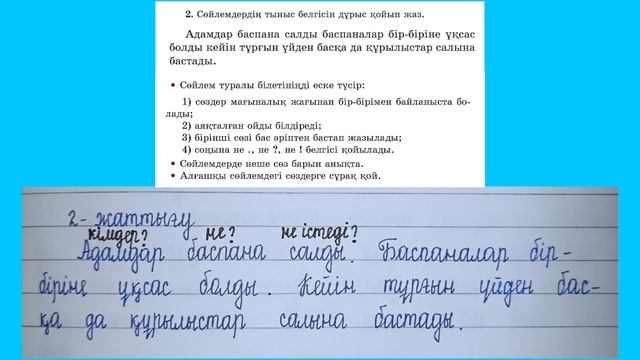 2. Сөйлемдердің тыныс белгісін дұрыс қойып жаз.
Адамдар баспана салды баспаналар бір-біріне ұқсас
болды кейін тұрғын үйден басқа да құрылыстар салына
бастады.
• Сөйлем туралы білетініңді еске түсір:
1) сөздер мағыналық жағынан бір-бірімен байланыста бо-
лады;
2) аяқталған ойды білдіреді;
3) бірінші сөзі бас әріптен бастап жазылады;
4) соңына не ., не ?, не ! белгісі қойылады.
• Сөйлемдерде неше сөз барын анықта.
• Алғашқы сөйлемдегі сөздерге сұрақ қой.
2- жаттығу
кімдер? не? не істеді?
Адамдар баспана салды. Баспаналар бір-
біріне ұқсас болды. Кейін тұрғын үйден бас-
қа да құрылыстар салына бастады.